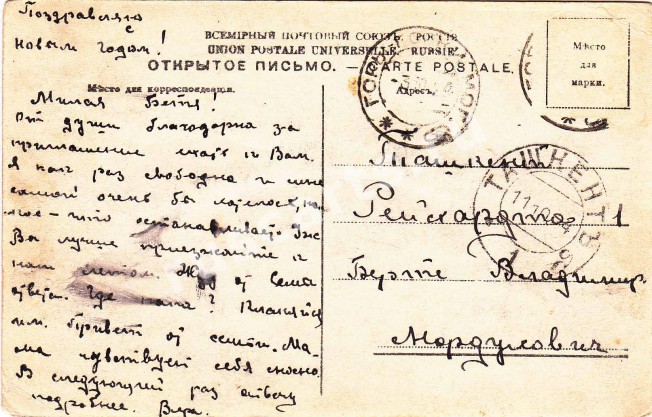 Поздравляю
с
новым годом!
ВСЕМІРНЫЙ ПОЧТОВЫЙ СОЮЗЪ. РОССІЯ.
UNION POSTALE UNIVERSELLE. RUSSIE.
ОТКРЫТОЕ ПИСЬМО. — CARTE POSTALE.
Мѣсто для корреспонденціи.
Адресъ.
Мѣсто
для
марки.
Милая Бетя!
От души благодарна за
приглашение ехать к Вам.
Я как раз свободна и мне
самой очень бы хотелось, но
кое-что останавливает. Уж
Вы лучше приезжайте к
нам летом. Жду от Вас
ответа. Где папа? Кланяйся
им. Привет от семьи. Ма-
ма чувствует себя сносно.
В следующий раз отвечу
подробнее. Вера.
Ташкент
Рейхардта 1
Берте Владимир.
Мордухович
ТАШКЕНТЪ